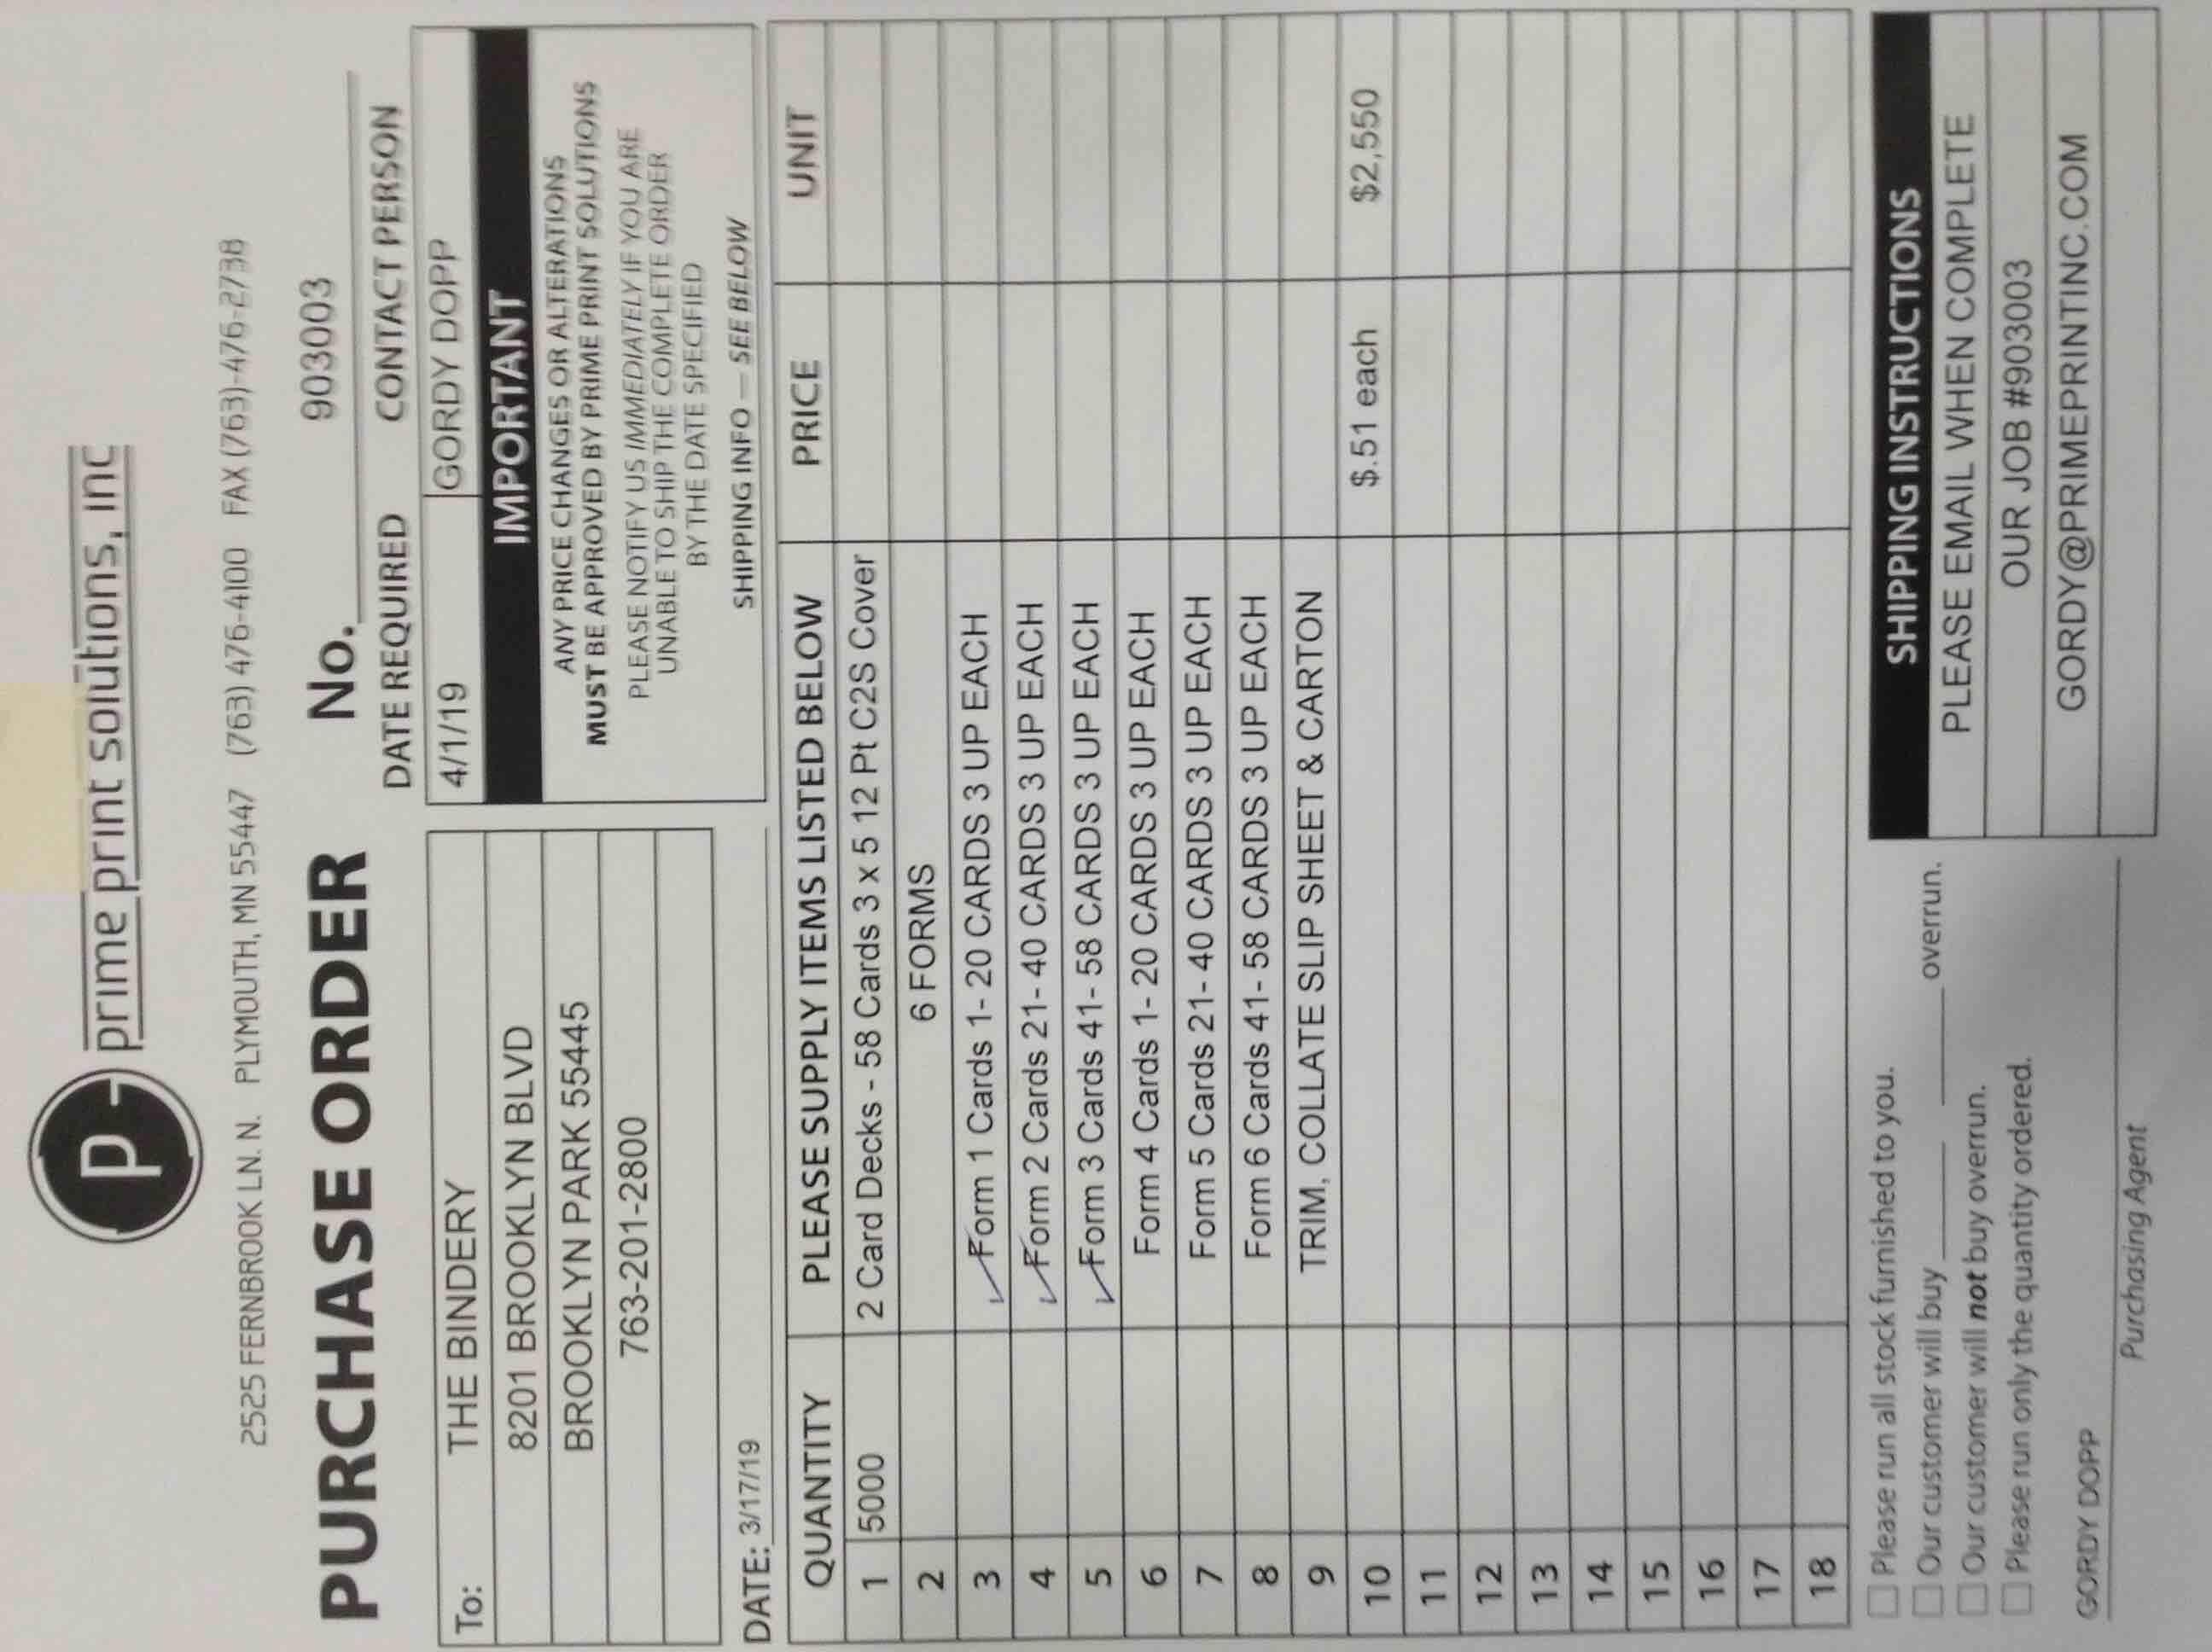 P- prime print solutions, inc
2525 FERNBROOK LN. N. PLYMOUTH, MN 55447 (763) 476-4100 FAX (763)-476-2738
PURCHASE ORDER No. 903003
DATE REQUIRED CONTACT PERSON
4/1/19 GORDY DOPP
To: THE BINDERY
8201 BROOKLYN BLVD
BROOKLYN PARK 55445
763-201-2800
IMPORTANT
ANY PRICE CHANGES OR ALTERATIONS
MUST BE APPROVED BY PRIME PRINT SOLUTIONS
PLEASE NOTIFY US IMMEDIATELY IF YOU ARE
UNABLE TO SHIP THE COMPLETE ORDER
BY THE DATE SPECIFIED
SHIPPING INFO — SEE BELOW
DATE: 3/17/19
QUANTITY PLEASE SUPPLY ITEMS LISTED BELOW PRICE UNIT
1 5000 2 Card Decks - 58 Cards 3 x 5 12 Pt C2S Cover
2 6 FORMS
3 ✓Form 1 Cards 1- 20 CARDS 3 UP EACH
4 ✓Form 2 Cards 21- 40 CARDS 3 UP EACH
5 ✓Form 3 Cards 41- 58 CARDS 3 UP EACH
6 Form 4 Cards 1- 20 CARDS 3 UP EACH
7 Form 5 Cards 21- 40 CARDS 3 UP EACH
8 Form 6 Cards 41- 58 CARDS 3 UP EACH
9 TRIM, COLLATE SLIP SHEET & CARTON
10 $.51 each $2,550
11
12
13
14
15
16
17
18
☐ Please run all stock furnished to you.
☐ Our customer will buy ____ ____ overrun.
☐ Our customer will not buy overrun.
☐ Please run only the quantity ordered.
GORDY DOPP
Purchasing Agent
SHIPPING INSTRUCTIONS
PLEASE EMAIL WHEN COMPLETE
OUR JOB #903003
GORDY@PRIMEPRINTINC.COM